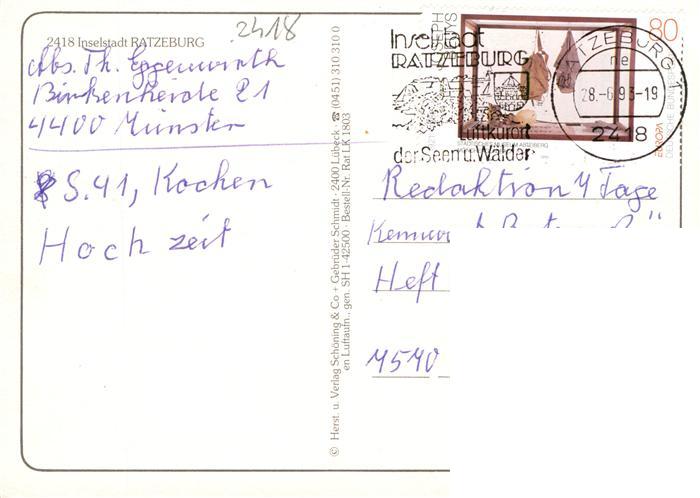 2418 Inselstadt RATZEBURG
2418
Abs. Th. Eggenwirth
Birkenheide 21
4400 Münster
S. 41, Kochen
Hoch zeit
© Herst. u. Verlag Schöning & Co + Gebrüder Schmidt · 2400 Lübeck ☎ (0451) 310 310 0
en Luftaufn., gen. SH 1-42500 · Bestell-Nr. Rat LK 1803
Inselstadt
RATZEBURG
Luftkurort
der Seen u. Wälder
80
EUROPA
RATZEBURG 1
28.-6.93-19
2418
Redaktion 4 Tage
Heft
4540